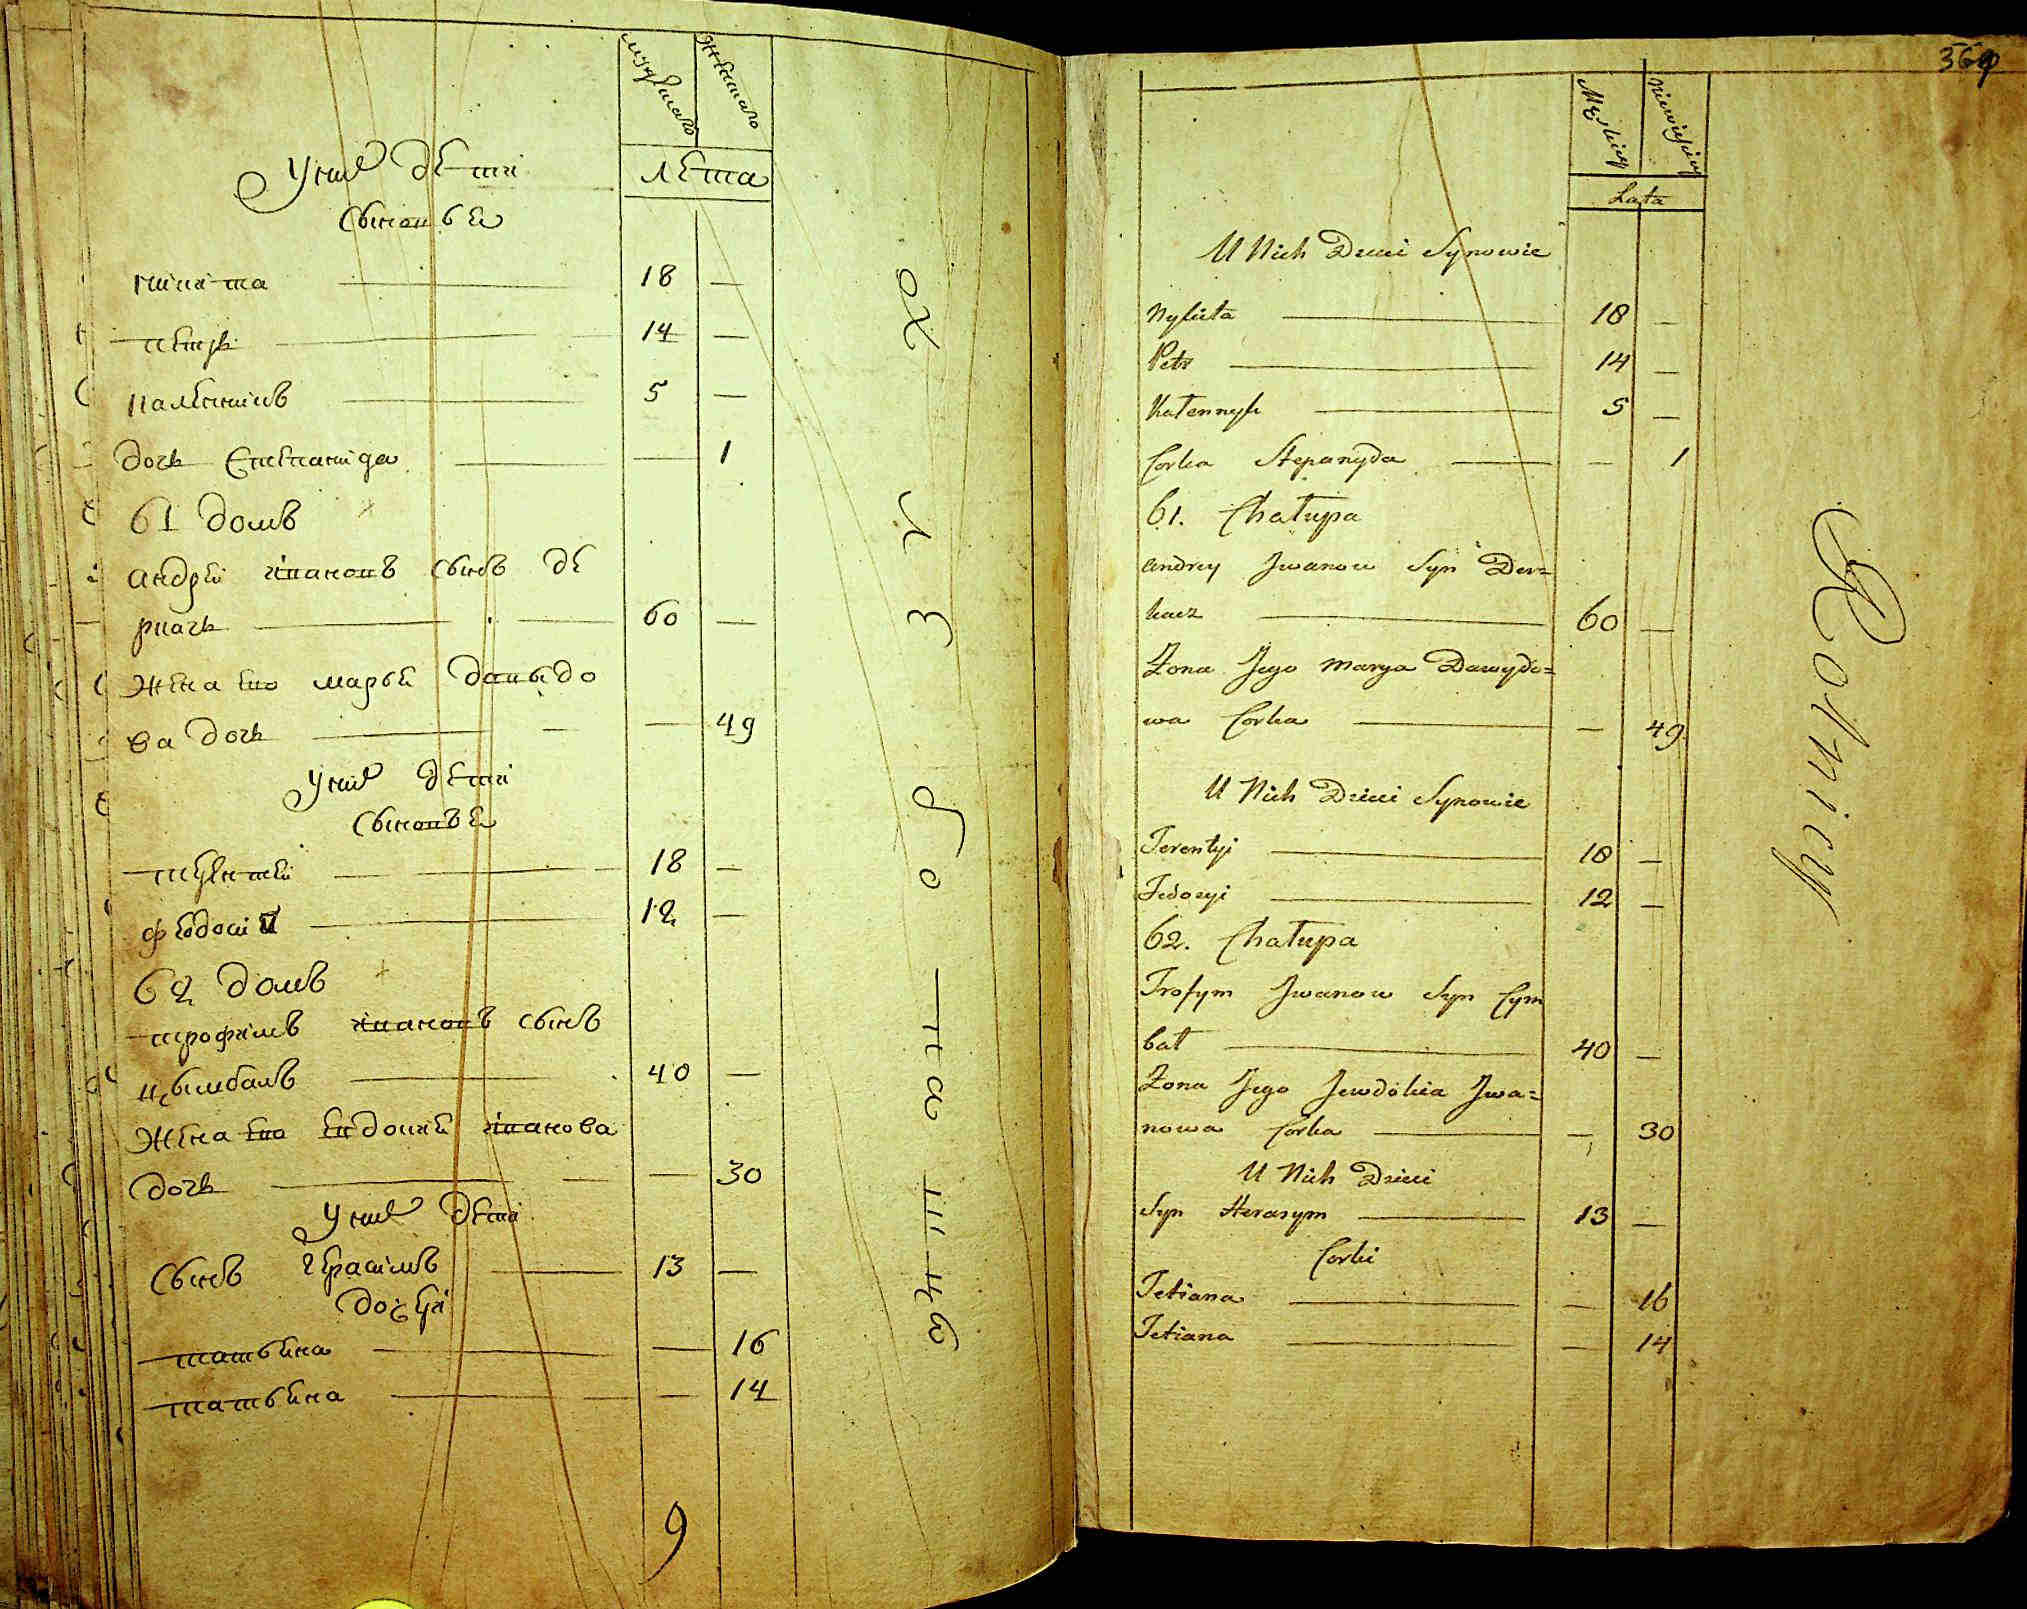 мужеска женска
лета
У них дети
Сынове
никита 18 —
петръ 14 —
калѣникъ 5 —
дочь Степанида — 1
61 домъ
андрей ивановъ сынъ де
ркачь 60 —
жена его марья давыдо
ва дочь — 49
У них дети
Сынове
терентей 18 —
феодосий 12 —
62 домъ
трофимъ ивановъ сынъ
цымбалъ 40 —
жена его евдокия иванова
дочь — 30
У них дети
Сынъ герасимъ 13 —
дочери
татьяна — 16
татьяна — 14
9
369
Męskiey Niewieskiey
Lata
U Nich Dzieci Synowie
Nykita 18 —
Petr 14 —
Kalennyk 5 —
Corka Stepanyda — 1
61. Chałupa
Andrey Jwanow Syn Der=
kacz 60 —
Zona Jego Marya Dawydo=
wa Corka — 49
U Nich Dzieci Synowie
Terentyi 18 —
Fedosyi 12 —
62. Chałupa
Trofym Jwanow Syn Cym
bał 40 —
Zona Jego Jewdokia Jwa=
nowa Corka — 30
U Nich Dzieci
Syn Herasym 13 —
Corki
Tetiana — 16
Tetiana — 14
Rolnicy